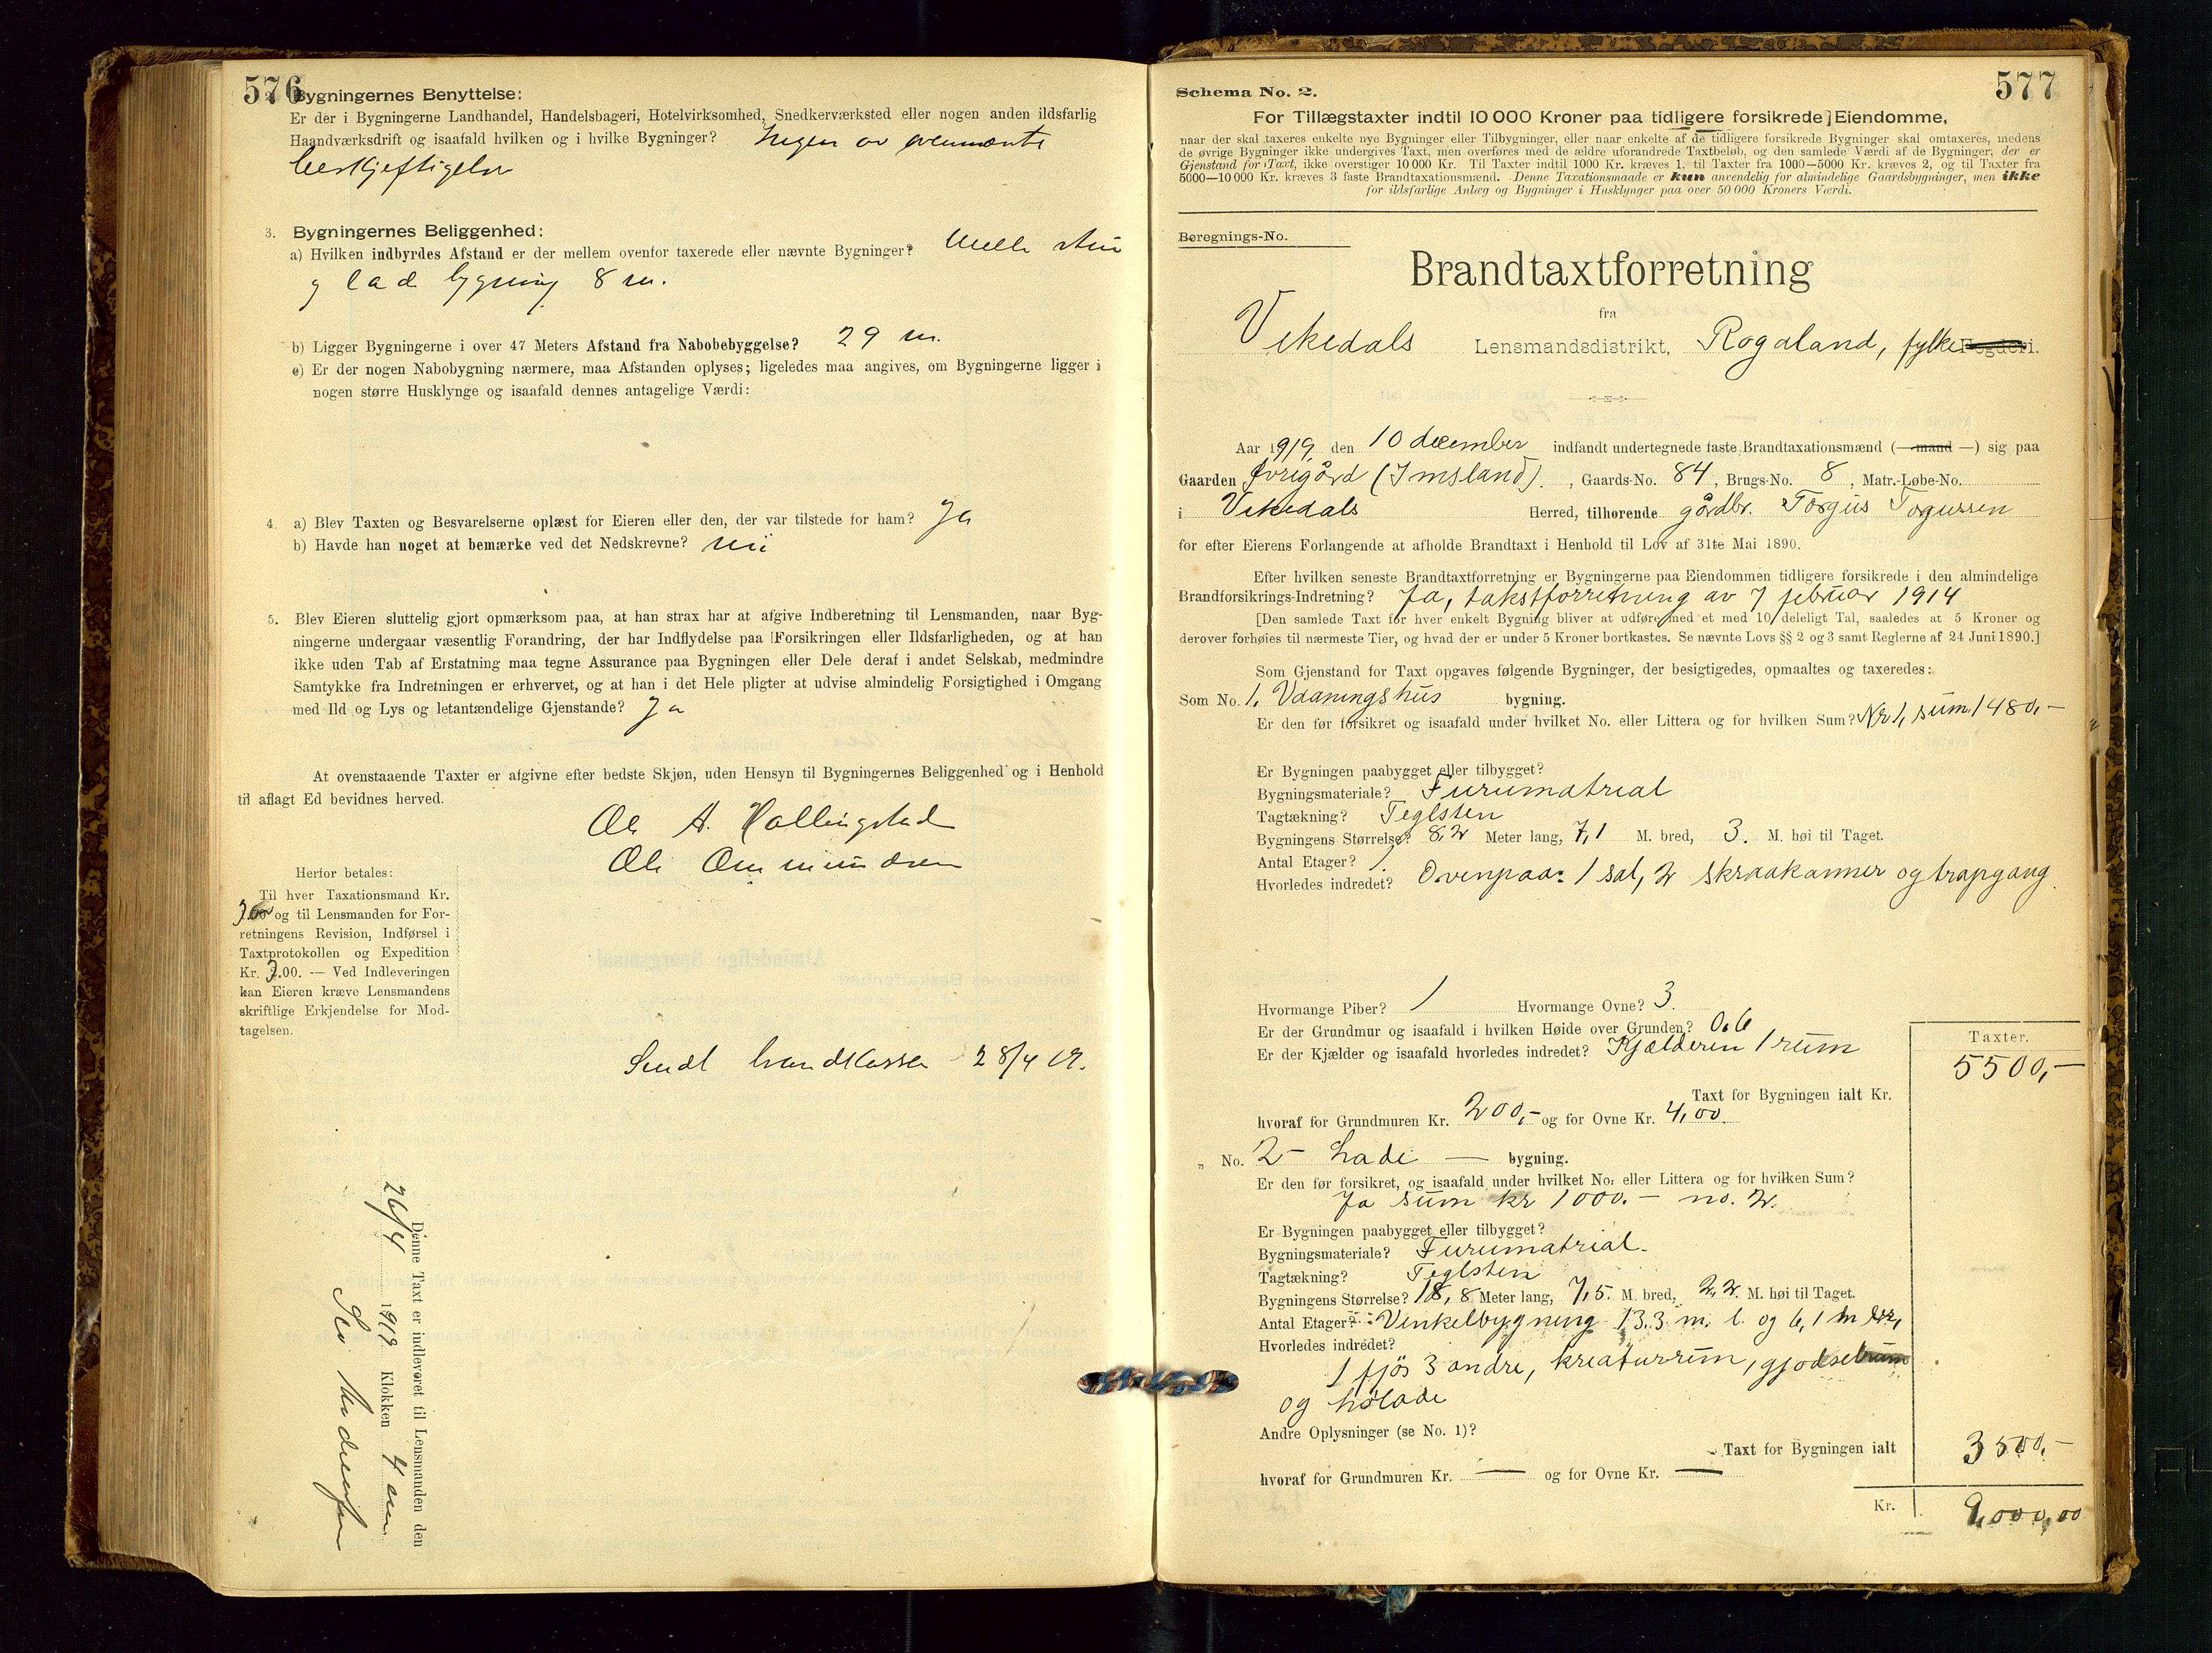 576
2. Bygningernes Benyttelse:
Er der i Bygningerne Landhandel, Handelsbageri, Hotelvirksomhed, Snedkerværksted eller nogen anden ildsfarlig
Haandværksdrift og isaafald hvilken og i hvilke Bygninger? Ingen av
3. Bygningernes Beliggenhed:
a) Hvilken indbyrdes Afstand er der mellem ovenfor taxerede eller nævnte Bygninger?
lade bygning 8 m.
b) Ligger Bygningerne i over 47 Meters Afstand fra Nabobebyggelse? 29 m.
c) Er der nogen Nabobygning nærmere, maa Afstanden oplyses; ligeledes maa angives, om Bygningerne ligger i
nogen større Husklynge og isaafald dennes antagelige Værdi:
4. a) Blev Taxten og Besvarelserne oplæst for Eieren eller den, der var tilstede for ham? Ja
b) Havde han noget at bemærke ved det Nedskrevne? nei
5. Blev Eieren sluttelig gjort opmærksom paa, at han strax har at afgive Indberetning til Lensmanden, naar Byg-
ningerne undergaar væsentlig Forandring, der har Indflydelse paa Forsikringen eller Ildsfarligheden, og at han
ikke uden Tab af Erstatning maa tegne Assurance paa Bygningen eller Dele deraf i andet Selskab, medmindre
Samtykke fra Indretningen er erhvervet, og at han i det Hele pligter at udvise almindelig Forsigtighed i Omgang
med Ild og Lys og letantændelige Gjenstande? Ja
At ovenstaaende Taxter er afgivne efter bedste Skjøn, uden Hensyn til Bygningernes Beliggenhed og i Henhold
til aflagt Ed bevidnes herved.
Ole A. Hallingstad
Ole Ommundsen
Herfor betales:
Til hver Taxationsmand Kr.
og til Lensmanden for For-
retningens Revision, Indførsel i
Taxtprotokollen og Expedition
Kr. 3.00. — Ved Indleveringen
kan Eieren kræve Lensmandens
skriftlige Erkjendelse for Mod-
tagelsen.
Sendt brandkassen 28/4 19.
Denne Taxt er indleveret til Lensmanden den
26/4 1919 Klokken 4 em.
577
Schema No. 2.
For Tillægstaxter indtil 10 000 Kroner paa tidligere forsikrede Eiendomme,
naar der skal taxeres enkelte nye Bygninger eller Tilbygninger, eller naar enkelte af de tidligere forsikrede Bygninger skal omtaxeres, medens
de øvrige Bygninger ikke undergives Taxt, men overføres med de ældre uforandrede Taxtbeløb, og den samlede Værdi af de Bygninger, der er
Gjenstand for Taxt, ikke overstiger 10 000 Kr. Til Taxter indtil 1000 Kr. kræves 1, til Taxter fra 1000—5000 Kr. kræves 2, og til Taxter fra
5000—10 000 Kr. kræves 3 faste Brandtaxationsmænd. Denne Taxationsmaade er kun anvendelig for almindelige Gaardsbygninger, men ikke
for ildsfarlige Anlæg og Bygninger i Husklynger paa over 50 000 Kroners Værdi.
Beregnings-No.
Brandtaxtforretning
fra
Vikedals Lensmandsdistrikt, Rogaland, fylke Fogderi.
Aar 1919, den 10 december indfandt undertegnede faste Brandtaxationsmænd (— mand —) sig paa
Gaarden Øvrigård (Imsland), Gaards-No. 84, Brugs-No. 8, Matr.-Løbe-No.
i Vikedals Herred, tilhørende gårdbr. Torgus Torgussen
for efter Eierens Forlangende at afholde Brandtaxt i Henhold til Lov af 31te Mai 1890.
Efter hvilken seneste Brandtaxtforretning er Bygningerne paa Eiendommen tidligere forsikrede i den almindelige
Brandforsikrings-Indretning? Ja, takstforretning av 7 februar 1914
[Den samlede Taxt for hver enkelt Bygning bliver at udføre med et med 10 deleligt Tal, saaledes at 5 Kroner og
derover forhøies til nærmeste Tier, og hvad der er under 5 Kroner bortkastes. Se nævnte Lovs §§ 2 og 3 samt Reglerne af 24 Juni 1890.]
Som Gjenstand for Taxt opgaves følgende Bygninger, der besigtigedes, opmaaltes og taxeredes:
Som No. 1. Vaaningshus bygning.
Er den før forsikret og isaafald under hvilket No. eller Littera og for hvilken Sum? Nr 1, sum 1480,-
Er Bygningen paabygget eller tilbygget?
Bygningsmateriale? Furumatrial
Tagtækning? Teglsten
Bygningens Størrelse? 8,2 Meter lang, 7,1 M. bred, 3. M. høi til Taget.
Antal Etager? 1
Hvorledes indredet? Ovenpaa: 1 sal, 2 skraakammer og trapgang
Hvormange Piber? 1 Hvormange Ovne? 3
Er der Grundmur og isaafald i hvilken Høide over Grunden? 0,6
Er der Kjælder og isaafald hvorledes indredet? Kjælderen 1 rum
Taxter.
5500,-
Taxt for Bygningen ialt Kr.
hvoraf for Grundmuren Kr. 200,- og for Ovne Kr. 4,00
" No. 2 - Lade — bygning.
Er den før forsikret, og isaafald under hvilket No. eller Littera og for hvilken Sum?
Ja sum kr 1000.- no. 2.
Er Bygningen paabygget eller tilbygget?
Bygningsmateriale? Furumatrial.
Tagtækning? Teglsten
Bygningens Størrelse? 18,8 Meter lang, 7,5. M. bred, 2,2. M. høi til Taget.
Antal Etager? Vinkelbygning 13.3 m. l. og 6,1 m br,
Hvorledes indredet?
1 fjøs 3 andre, kreaturrum, gjødselrum
og hølade
Andre Oplysninger (se No. 1)?
Taxt for Bygningen ialt 3500.-
hvoraf for Grundmuren Kr. — og for Ovne Kr. —
Kr. 9,000,00